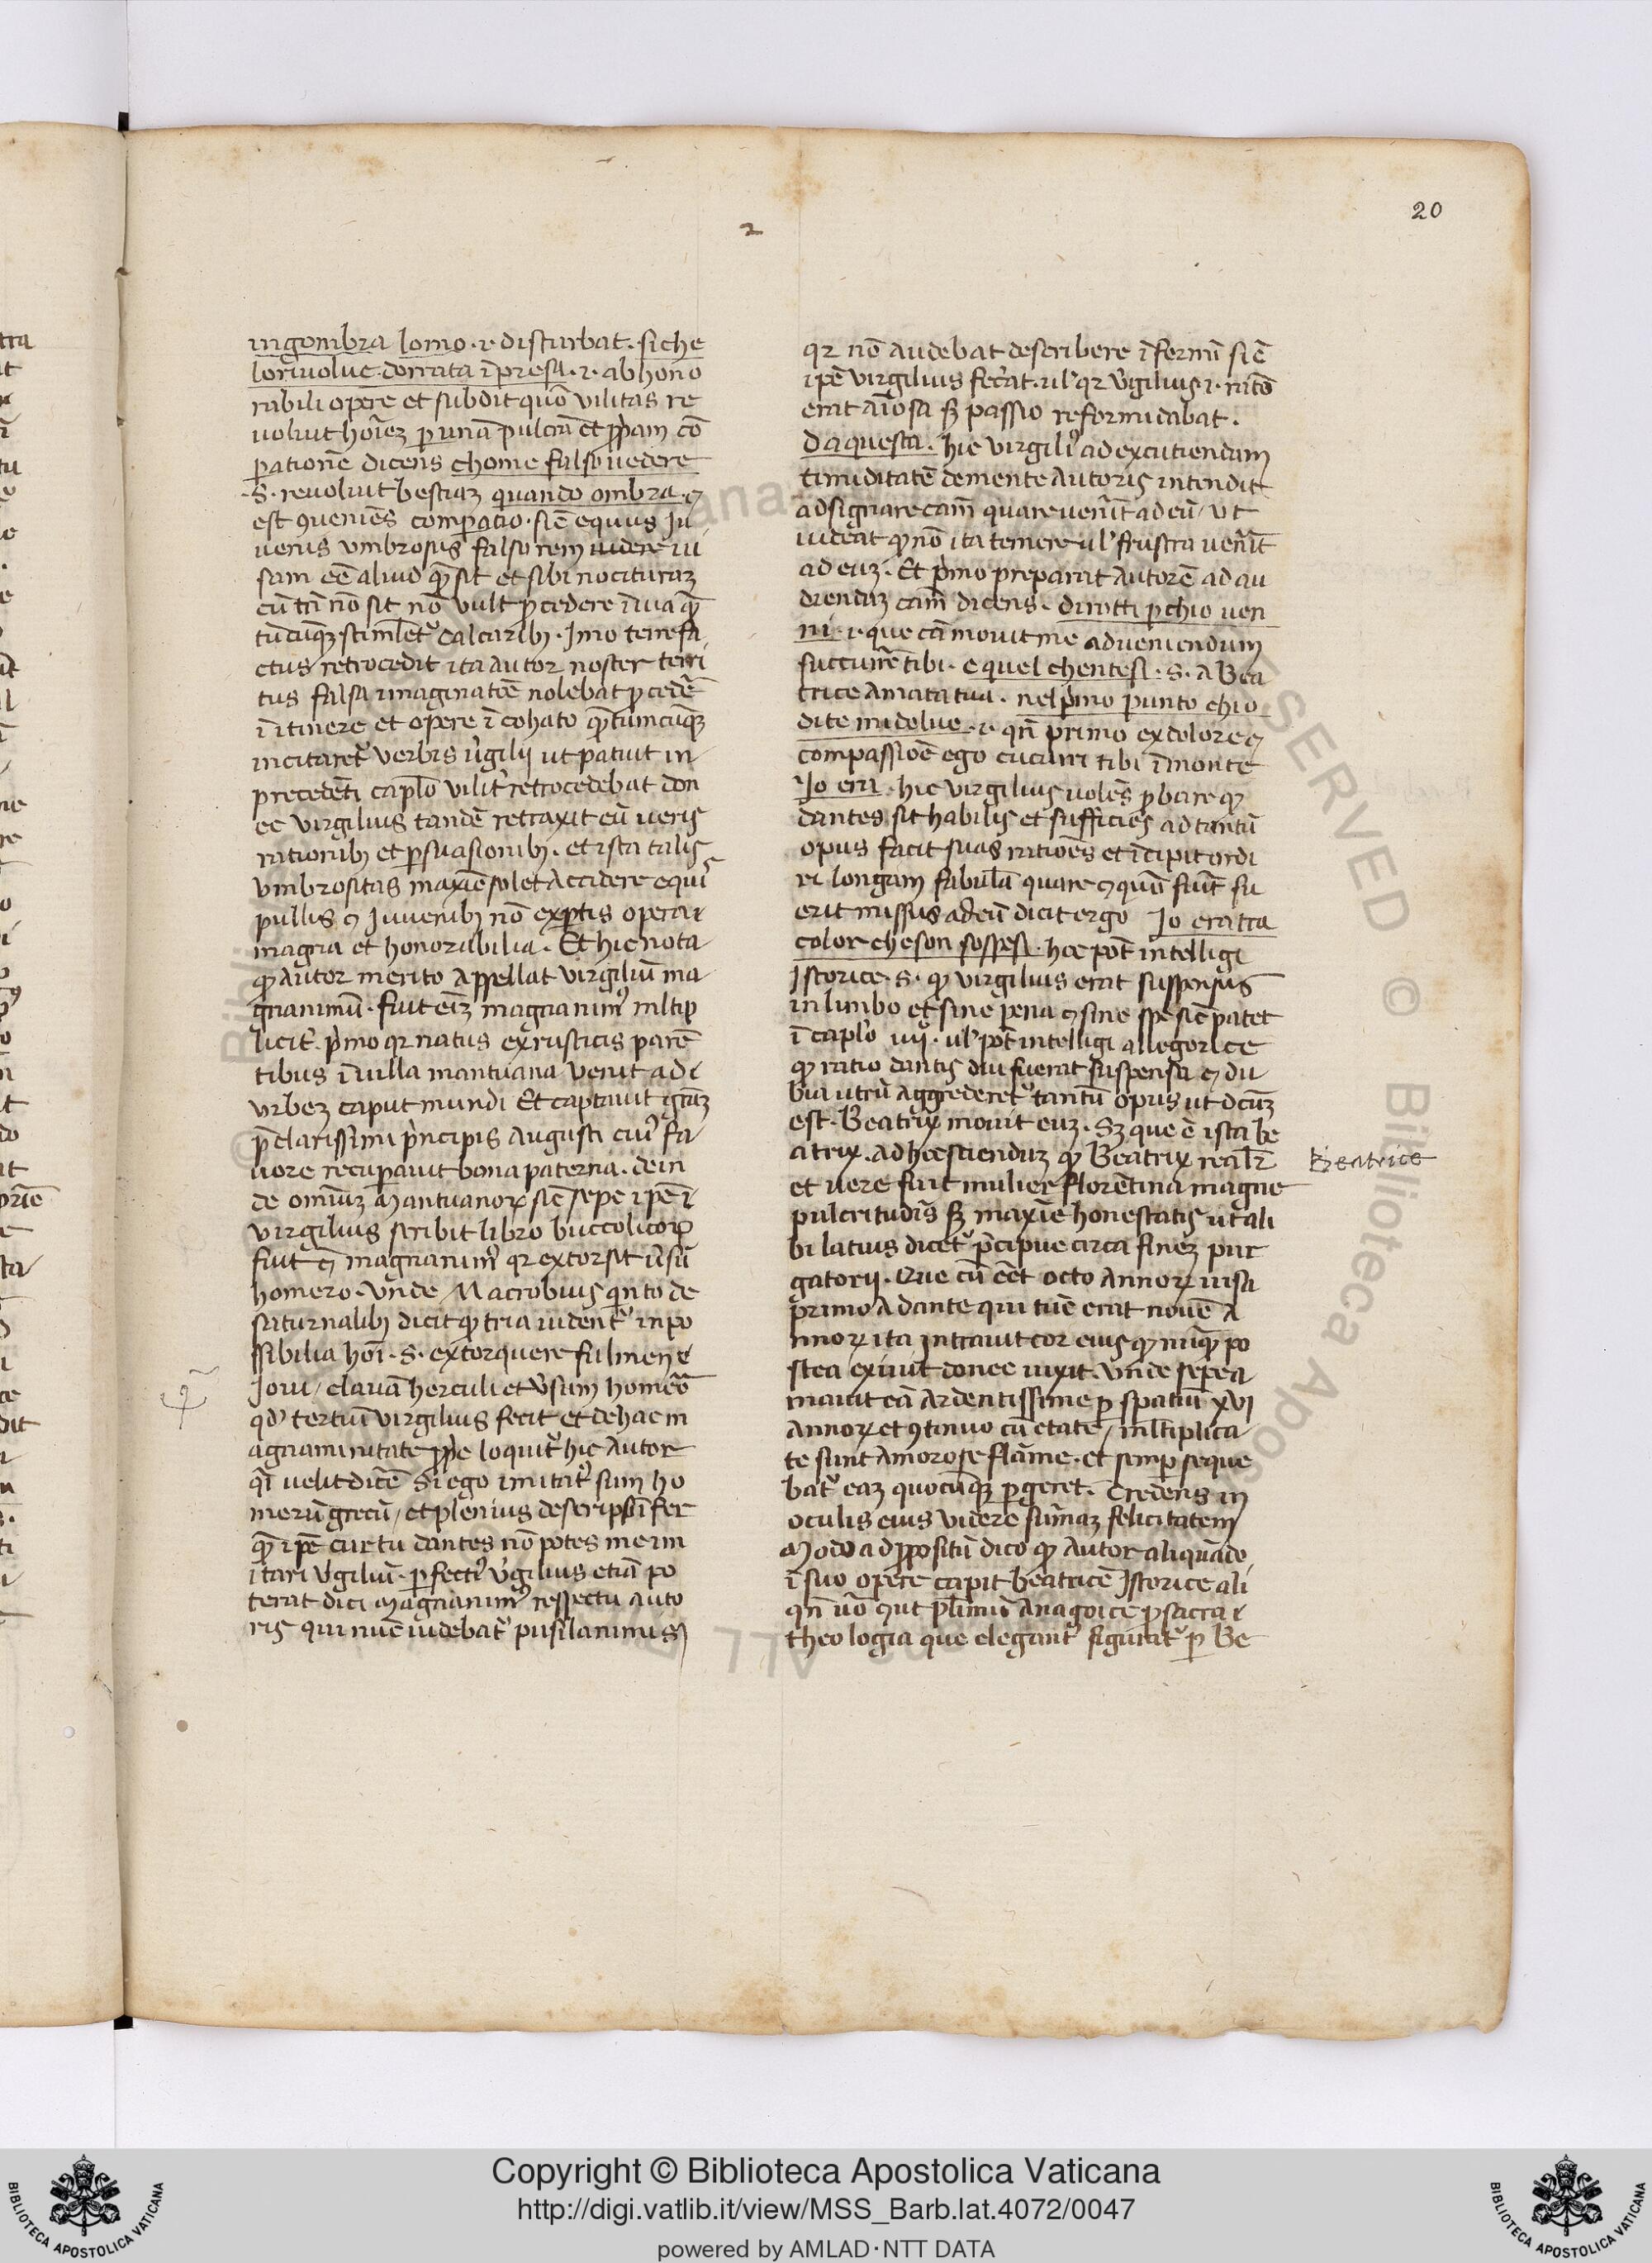 20
2
ingombra lomo .i. disturbat. siche
lorivolve donrata īpresa .i. ab hono
rabili opere et subdit quō vilitas re
volvit hoīez p unā pulcrā et ppam cō
pationē dicens chome falso vedere
.S. revolvit bestiaz quando ombra. ⁊
est ꝯueniēs compatio. siē equus Ju
venis umbrosus falso rem videre vi
sam eē aliud qͫ sit et sibi nocituraz
cū tn̄ nō sit nō vult pcedere ī via qͫ
tūcūqꝫ stimlet᷑ calcaribꝫ. Imo terrefa
ctus retrocedit ita autor noster terri
tus falsa imaginatōe nolebat pcedē
ī itinere et opere īcohato qͫtumcūqꝫ
incitaret᷑ verbis v̓gilij ut patuit in
precedēti caplō vilit̓ retrocedebat don
ec virgilius tandē retraxit eū veris
rationibꝫ et psuasionibꝫ. et ista talis
umbrositas maxīe solet accidere equis
pullis ⁊ Juvenibꝫ nō exptis opera
magna et honorabilia. Et hic nota
qꝫ autor merito appellat virgiliū ma
gnanimū. fuit eīz magnanimꝰ mltip
licit̓. pͥmo qꝛ natus ex rusticis parē
tibus ī villa mantuana venit ad
urbez caput mundi Et captavit grāz
pclarissimi pͥncipis augusti cuiꝰ fa
vore recupavit bona paterna. dein
de omniuz Mantuanoꝝ siē sepe ipē
virgilius scribit libro buccolicoꝝ
fuit ⁊ magnanimꝰ qꝛ extorsit v̓sū
homero. Unde Macrobius quinto de
saturnalibꝫ dicit qꝫ tria vident᷑ inpo
ssibilia hoī .S. extorquere fulmen
Jovi / clavā herculi et v̓sum homeō
qd̓ tertiū virgilius fecit et de hac m
agnanimitate ppe loquit᷑ hic autor
qͣi velit dicē Si ego imitatꝰ sum ho
merū grecū / et plenius descripsi īfer
qͫ ipē cur tu dantes nō potes me im
itari v̓giliū. pfectꝰ v̓gilius etiā po
terat dici magnanimꝰ respectu auto
ris qui nūc videbat᷑ pusilanimis
qꝛ nō audebat describere īfernū siē
ipē virgilius fecat. vl̓ qꝛ v̓gilius .i. ratō
erat aīosa sꝫ passio reformidabat.
Da questa. hic virgiliꝰ ad excutiendam
timiditatē de mente autoris intendit
adsignare cam̄ quare venīt ad eū / ut
videat qꝫ nō ita temere vl̓ frustra venīt
ad euz. Et pͥmo preparat autorē ad au
diendaz cam̄ dicens. dirotti pchio ven
ni .i. que cā movit me ad veniendum
succurrē tibi. e quel chentesi .S. a Bea
trice amata tua. nel pͥmo punto chio
dite mi dolve .i. qn̄ primo ex dolore ⁊
compassiōe ego cucurri tibi ī monte
Jo era. hic virgilius volēs pbare qꝫ
dantes sit habilis et sufficiēs ad tantū
opus facit suas ratiōes et īcipit ordi
ri longam fabulā quare ⁊ quō fiūt fu
erit missus ad eū dicit ergo Jo era tra
color che son sospesi. hec pōt intelligi
Jstorice .S. qꝫ virgilius erat suspensus
in limbo et sine pena ⁊ sine spe siē patet
ī caplō iiij. vl̓ pōt intelligi allegorice
qꝫ ratio dantis diu fuerat suspensa ⁊ du
bia utrū aggrederet᷑ tantū opus ut dcūz
est. Beatrix movit euz. Sꝫ que ē ista be
atrix. ad hoc sciendaz qꝫ Beatrix realr̄
Beatrice
et vere fuit mulier florētina magne
pulcritudīs sꝫ maxīe honestatis ut ali
bi latius dicet᷑ pͥcipue circa finez pur
gatorij. Que cū eēt octo annoꝝ visa
primo a dante qui tūc erat novē a
nnoꝝ ita intravit cor eius qꝫ nūqͫ po
stea exivit donec vixit. Unde sepe a
mavit eā ardentissime p spatiū xvj
annoꝝ et ꝯtinuo cū etate / mltiplica
te sunt amorose flāme. et semp seque
bat᷑ eaz quocūqꝫ pgeret. Credens in
oculis eius videre sūmaz felicitatem
Modo ad ppositū dico qꝫ autor aliquādo
ī suo opere capit beatricē Jstorice ali
qn̄ vō ⁊ ut plīmū anagoice p sacra
theologia que elegant̓ figurat᷑ p Be
Copyright © Biblioteca Apostolica Vaticana
http://digi.vatlib.it/view/MSS_Barb.lat.4072/0047
powered by AMLAD·NTT DATA
BIBLIOTECA APOSTOLICA VATICANA
BIBLIOTECA APOSTOLICA VATICANA